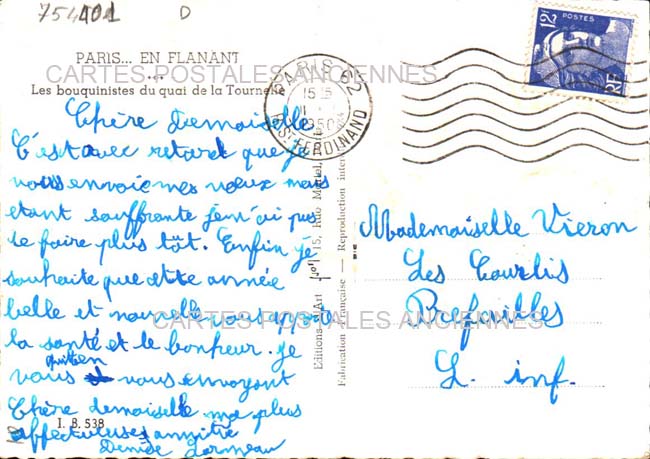 754101 D
PARIS... EN FLANANT
CARTES POSTALES ANCIENNES
Les bouquinistes du quai de la Tournelle
PARIS 62
15 15
1950
ST-FERDINAND
12F POSTES
RF
Chère Demoiselle
C'est avec retard que je
vous envoie mes vœux mais
étant souffrante je n'ai pus
le faire plus tôt. Enfin je
souhaite que cette année
belle et nouvelle vous apporte
la santé et le bonheur. Je
vous vous envoyant
Chère demoiselle ma plus
affectueuses amitié
Denise
I. B. 538
Editions d'Art 15, Rue Martel,
Fabrication Française — Reproduction inter
Mademoiselle Vieron
Les
L. inf.
CARTES POSTALES ANCIENNES